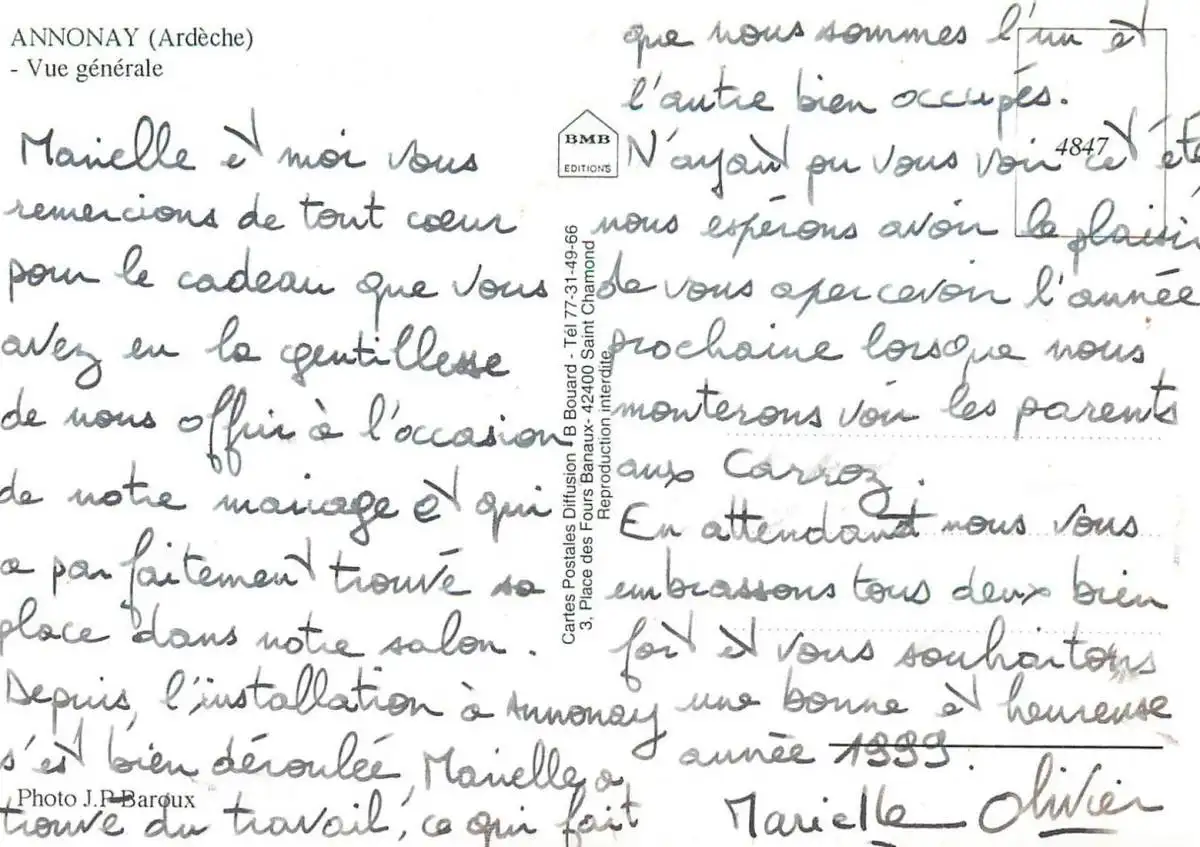 ANNONAY (Ardèche)
- Vue générale
Marielle et moi vous
remercions de tout cœur
pour le cadeau que vous
avez eu la gentillesse
de nous offrir à l'occasion
de notre mariage et qui
a parfaitement trouvé sa
place dans notre salon.
Depuis, l'installation à Annonay
s'est bien déroulée, Marielle a
Photo J.P Baroux
trouvé du travail, ce qui fait
BMB
EDITIONS
Cartes Postales Diffusion - B Bouard - Tél 77-31-49-66
3, Place des Fours Banaux- 42400 Saint Chamond
Reproduction interdite
que nous sommes l'un et
l'autre bien occupés.
4847
N'ayant pu vous voir cet été
nous espérons avoir le plaisir
de vous apercevoir l'année
prochaine lorsque nous
monterons voir les parents
aux Carroz.
En attendant nous vous
embrassons tous deux bien
fort et vous souhaitons
une bonne et heureuse
année 1999.
Marielle Olivier